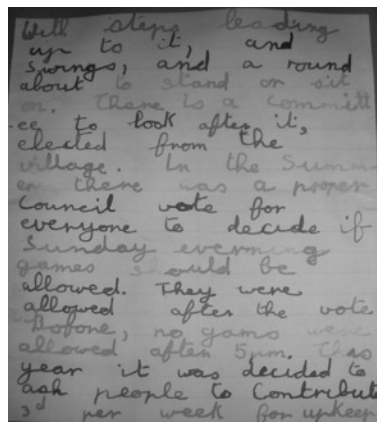 With steps leading
up to it, and
swings, and a round
about to stand or sit
on. There is a Committ
ee to look after it,
elected from the
village. In the Summ-
er there was a proper
Council vote for
everyone to decide if
Sunday evening
games should be
allowed. They were
allowed after the vote
Before, no games were
allowed after 5pm. This
year it was decided to
ask people to Contribute
3d per week for upkeep